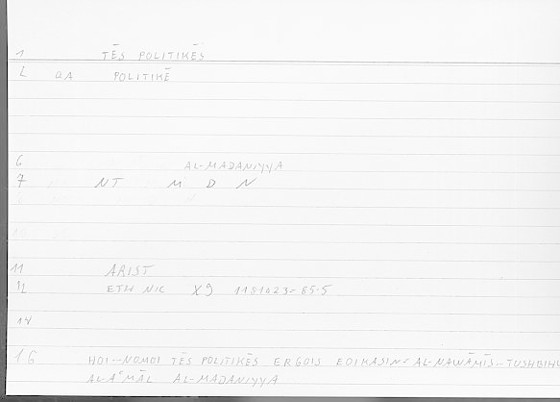 1 TĒS POLITIKĒS
2 OA POLITIKĒ
6 AL-MADANIYYA
7 NT M D N
11 ARIST
12 ETH NIC X9 1181A23
14
16 HOI—NOMOI TĒS POLITIKĒS ERGOIS EOIKASIN= AL-NAWĀMĪS—TUSHBIHU
AL-AʿMĀL AL-MADANIYYA